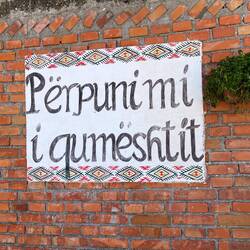 Përpunimi
i qumështit